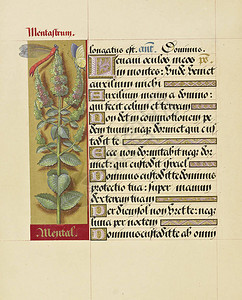 Mentastrum.
longatus est. ant. Dominus.
Levavi oculos meos ps.
in montes: unde veniet
auxilium michi
Auxilium meum a domino:
qui fecit celum et terram
Non det in commotionem pe
dem tuum: neq; dormitet qui cu
stodit te
Ecce non dormitabit neq; dor
miet: qui custodit israel
Dominus custodit te dominus
protectio tua: super manum
dexteram tuam
Per diem sol non uret te: neq;
luna per noctem
Dominus custodit te ab omni
Mental.